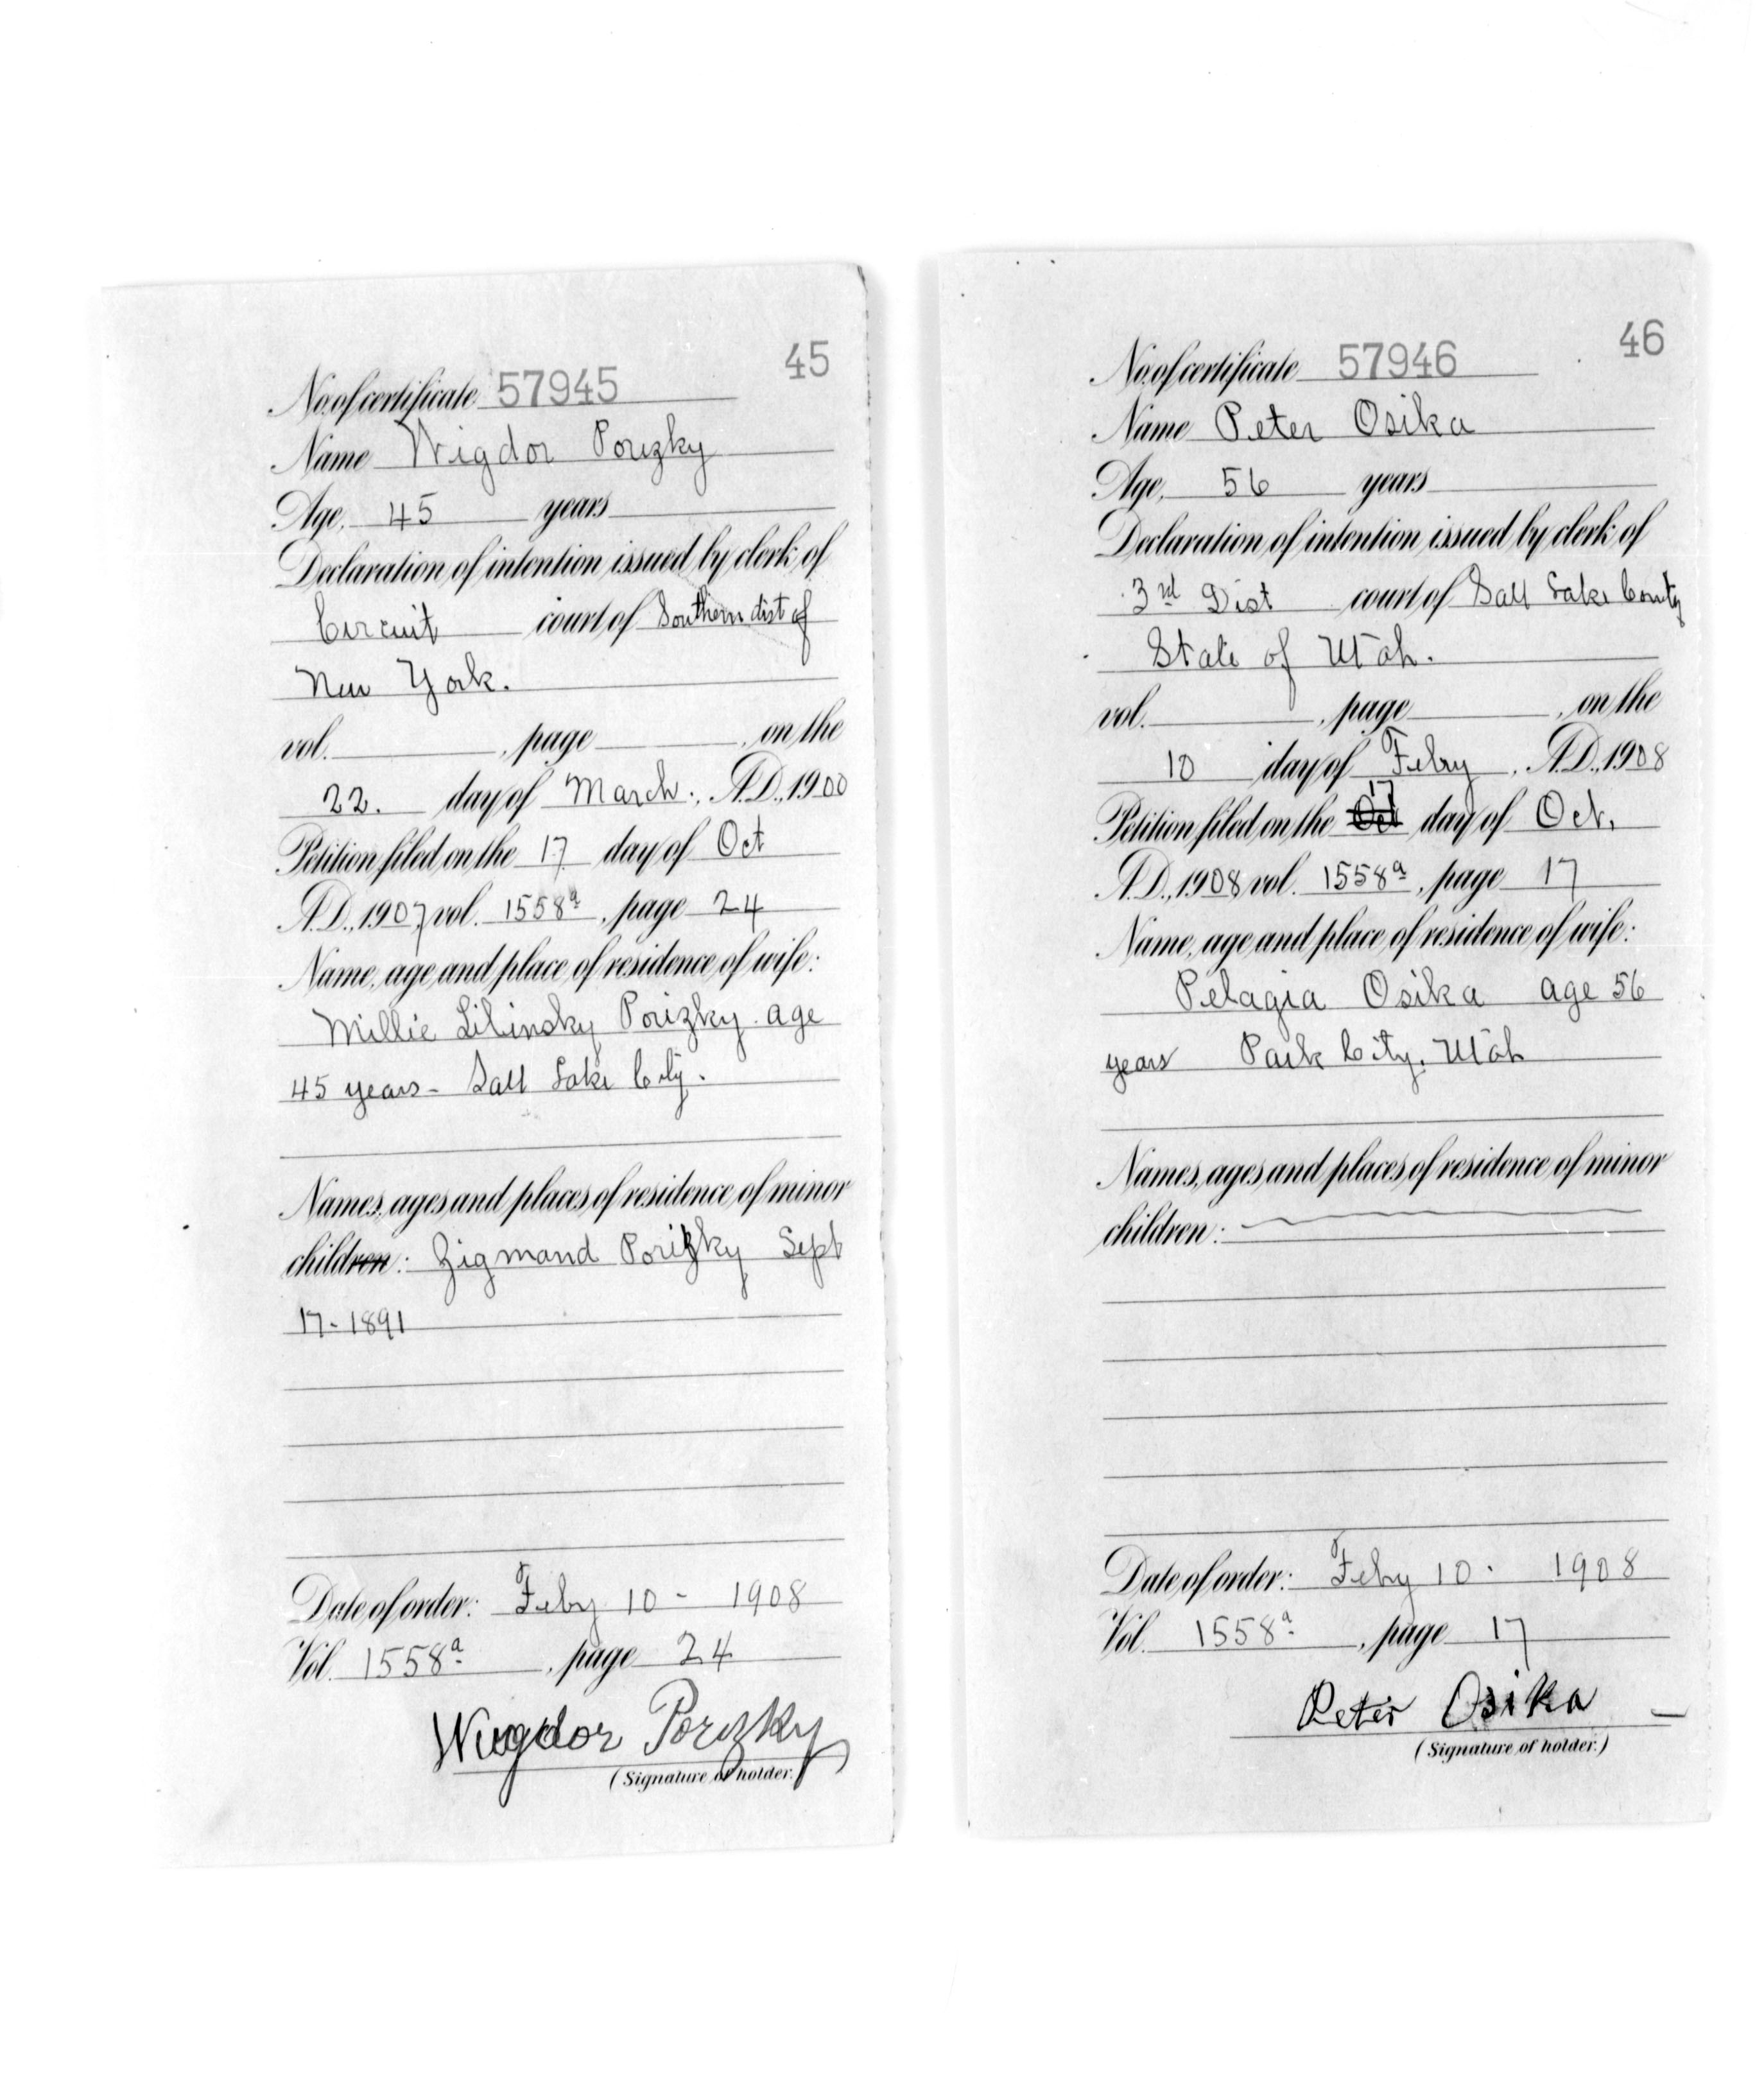 45
No. of certificate 57945
Name Wigdor Porizky
Age, 45 years
Declaration of intention issued by clerk of
Circuit court of Southern dist of
New York.
vol. , page , on the
22. day of March., A.D., 1900
Petition filed on the 17 day of Oct
A.D., 1907, vol. 1558a, page 24
Name, age and place of residence of wife:
Millie Libinsky Porizky age
45 years - Salt Lake City.
Names, ages and places of residence of minor
children: Zigmand Porizky Sept
17-1891
Date of order: Feby 10 - 1908
Vol. 1558a, page 24
Wigdor Porizky
(Signature of holder.)
46
No. of certificate 57946
Name Peter Osika
Age, 56 years
Declaration of intention issued by clerk of
3rd Dist court of Salt Lake County
State of Utah.
vol. , page , on the
10 day of Feby, A.D., 1908
17
Petition filed on the Oct day of Oct.
A.D., 1908, vol. 1558a, page 17
Name, age and place of residence of wife:
Pelagia Osika age 56
years Park City. Utah
Names, ages and places of residence of minor
children:
Date of order: Feby 10. 1908
Vol. 1558a, page 17
Peter Osika
(Signature of holder.)